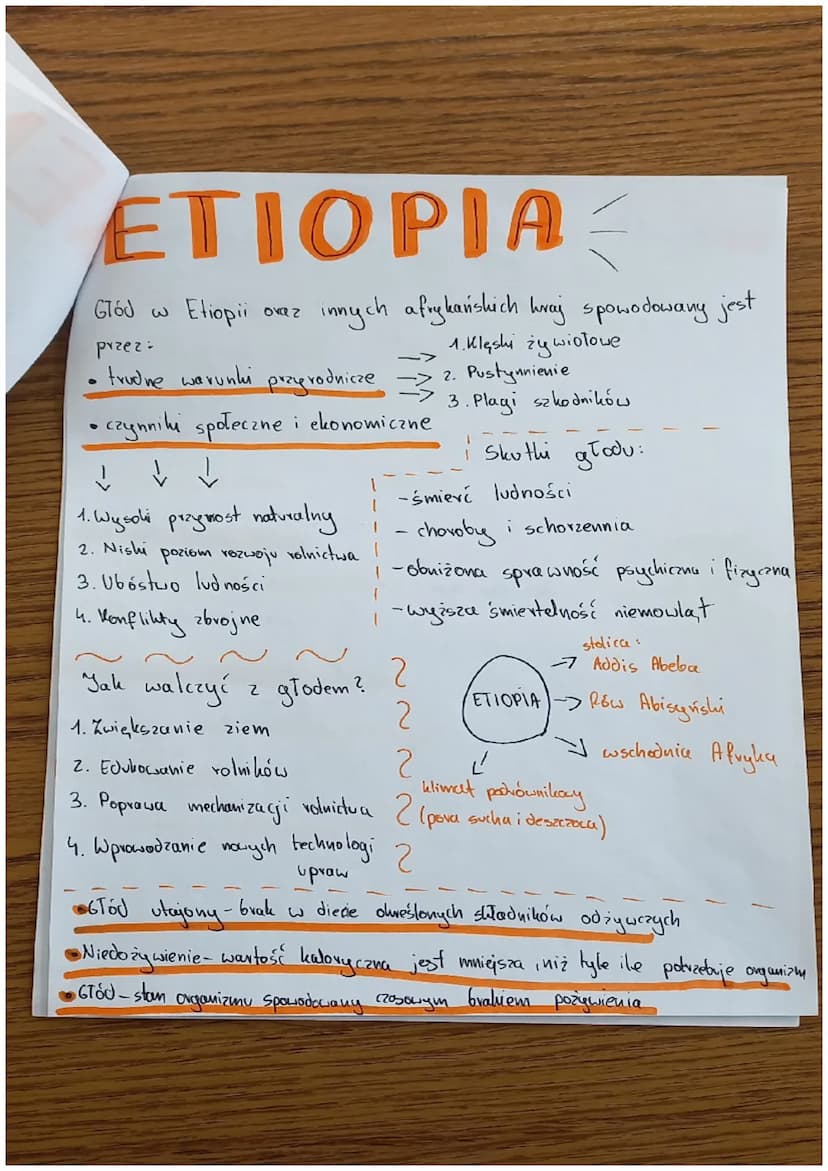 ETIOPIA
Głód w Etiopii oraz innych afrykańskich kraj spowodowany jest
przez:
• trudne warunki przyrodnicze
1. Klęski żywiołowe
2. Pustynnienie
3. Plagi szkodników
• czynniki społeczne i ekonomiczne
1. Wysoki przyrost naturalny
2. Niski poziom rozwoju rolnictwa
3. Ubóstwo ludności
4. Konflikty zbrojne
Skutki głodu:
- śmierć ludności
- choroby i schorzennia
- obniżona sprawność psychiczna i fizyczna
- wyższa śmiertelność niemowląt
Jak walczyć z głodem?
1. Zwiększanie ziem
2. Edukowanie rolników
3. Poprawa mechanizacji rolnictwa
4. Wprowadzanie nowych technologi
upraw
ETIOPIA
stolica:
Addis Abeba
Rów Abisyński
wschodnia Afryka
klimat podrównikowy
(pora sucha i deszczowa)
• Głód utajony - brak w diecie określonych składników odżywczych
• Niedożywienie - wartość kaloryczna jest mniejsza, niż tyle ile potrzebuje organizm
• Głód - stan organizmu spowodowany czasowym brakiem pożywienia